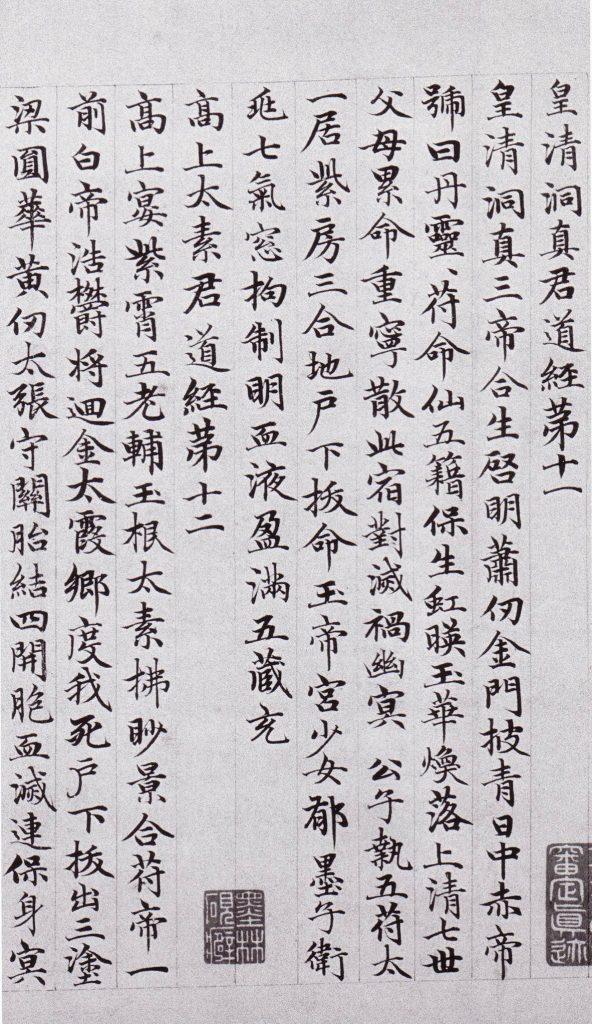 皇清洞真君道經苐十一
皇清洞真三帝合生啓明蕭仞金門披青日中赤帝
號曰丹靈、苻命仙五籍保生虹暎玉華煥落上清七世
父母累命重寧散此宿對滅禍幽冥 公子執五苻太
一居紫房三合地戶下拔命玉帝宮少女郁墨子衛
玭七氣窓拘制明血液盈滿五蔵充
髙上太素君道經苐十二
髙上宴紫霄五老輔玉根太素拂眇景合苻帝一
前白帝浩欝将迴金太霞鄉度我死戶下拔出三塗
梁圓華黃仞太張守關胎結四開胞血滅連保身冥
審定真迹
墨林硯癖